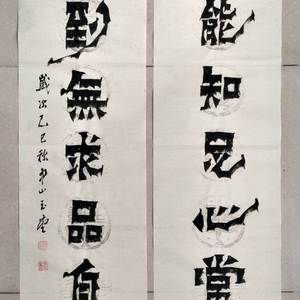 能知足心常
到無求品自
歲次乙巳秋